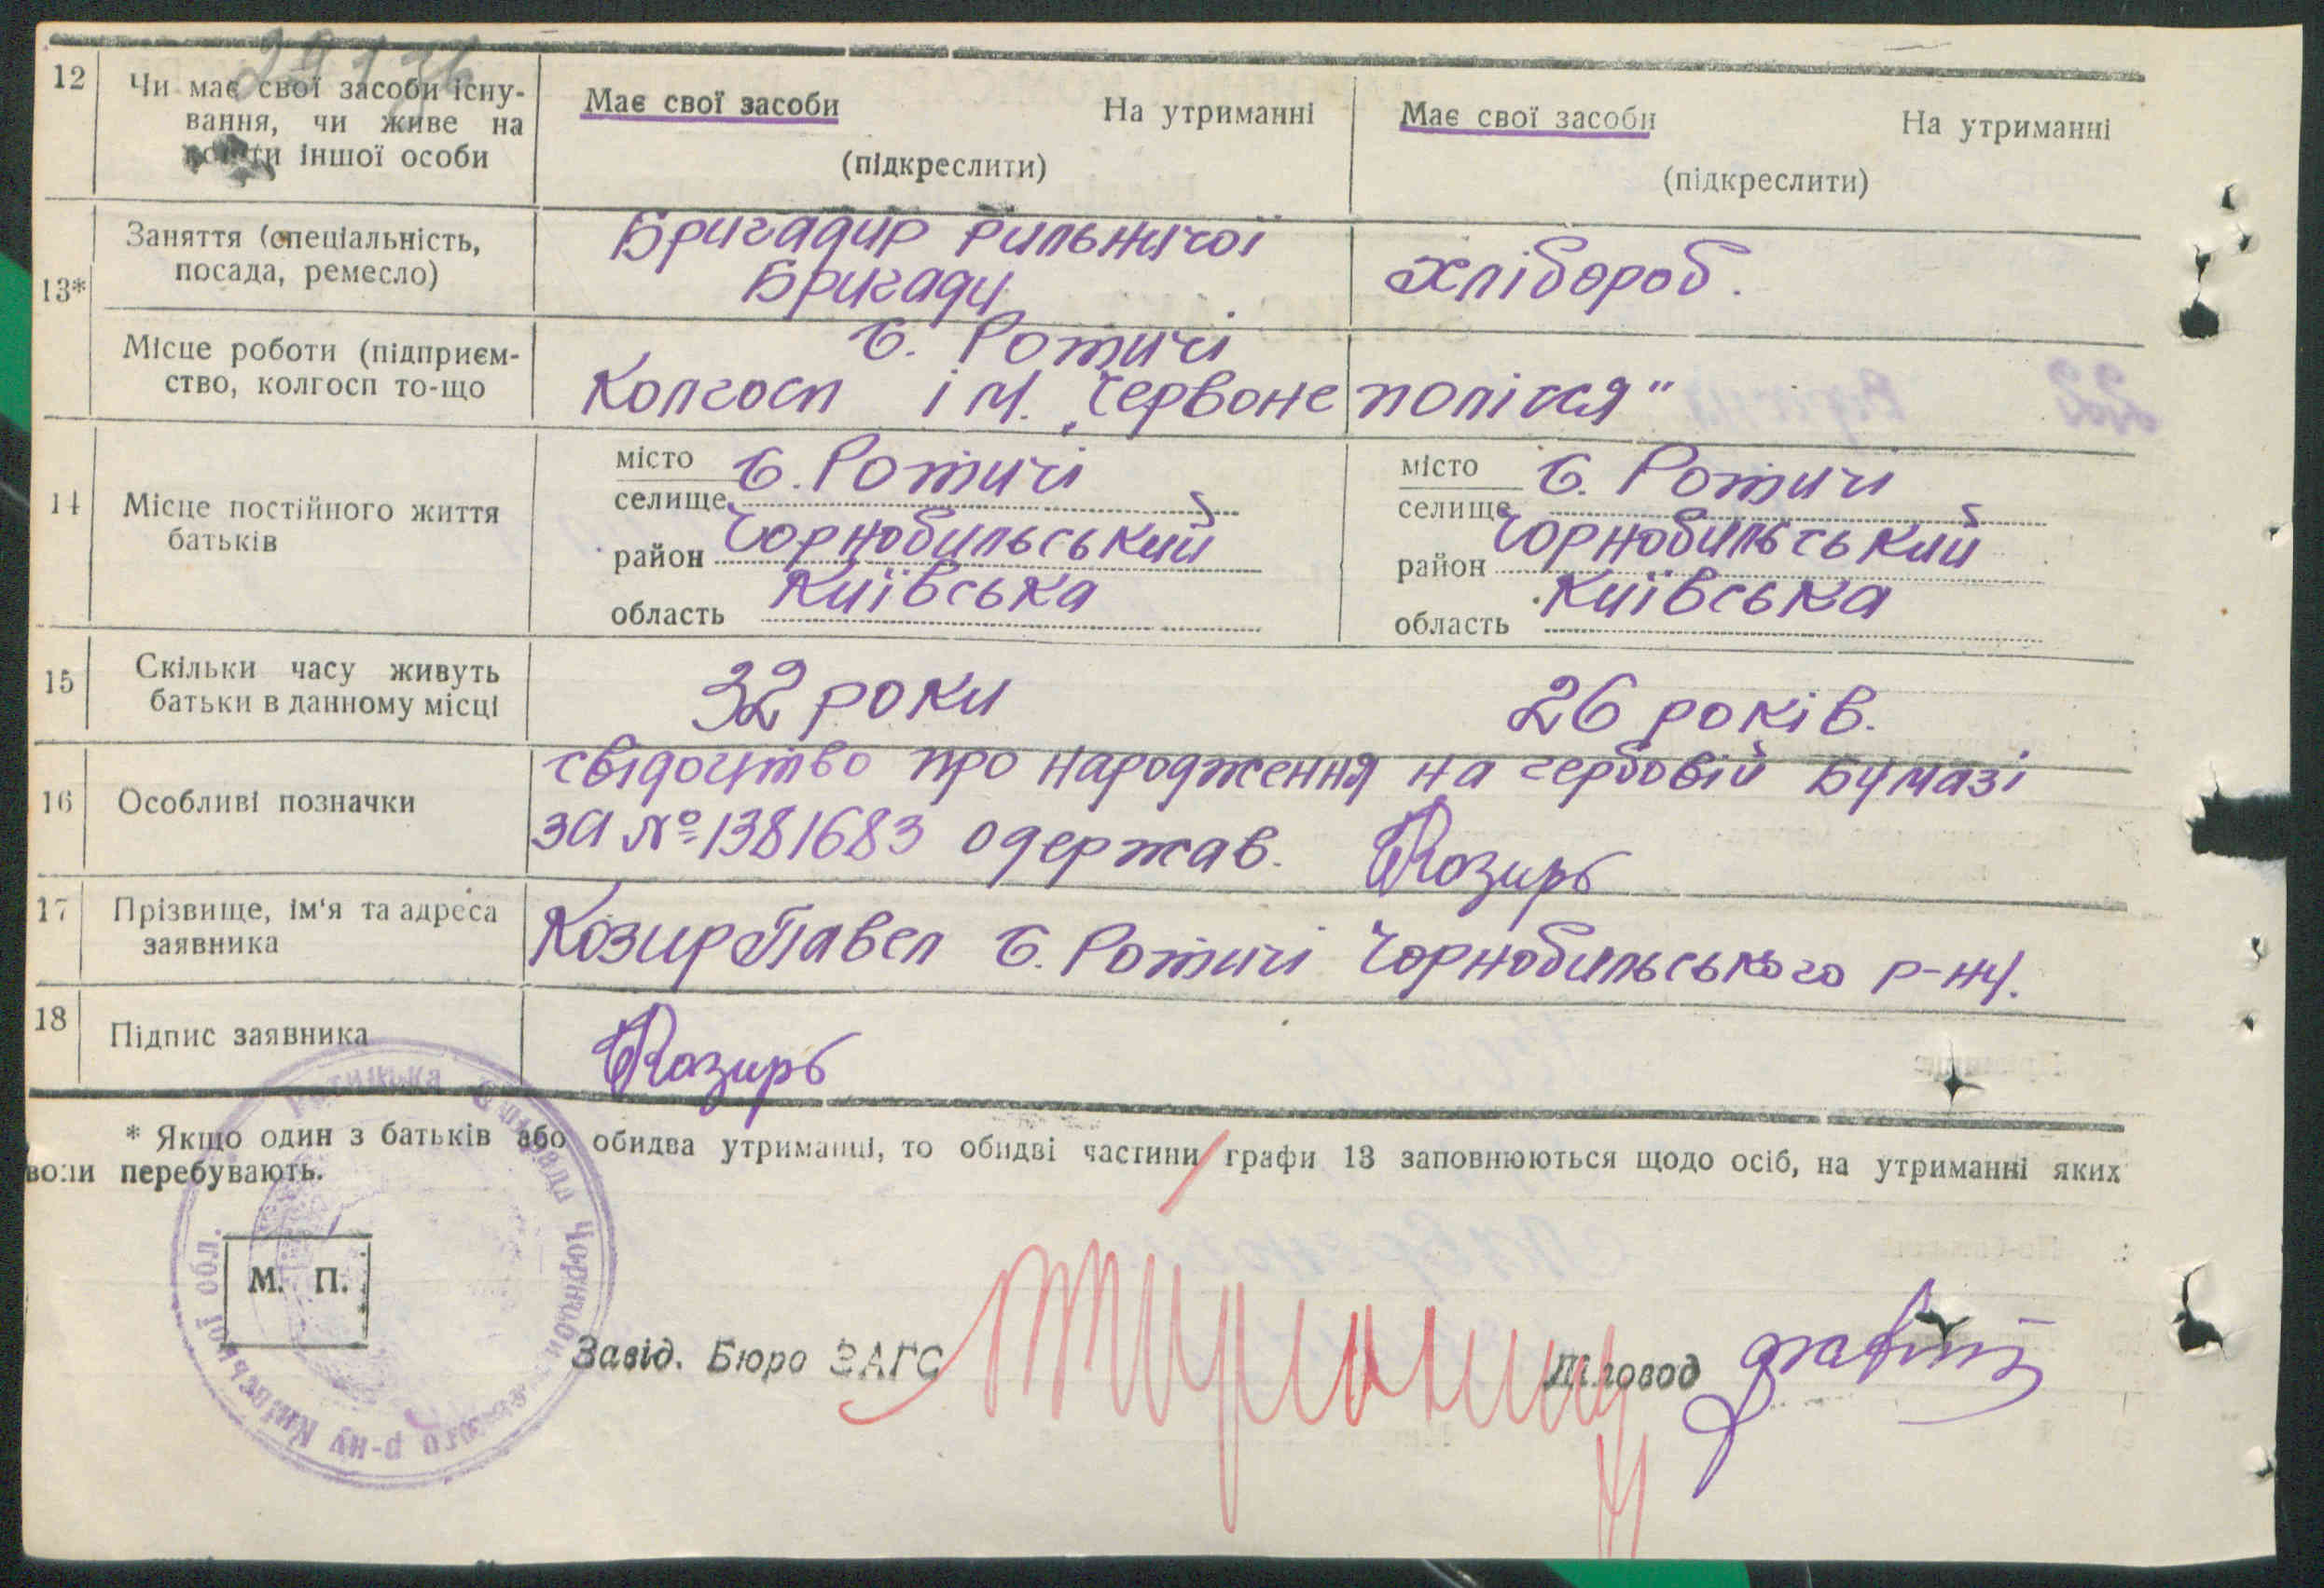 12 Чи має свої засоби існу-
вання, чи живе на
кошти іншої особи
Має свої засоби На утриманні
(підкреслити)
Має свої засоби На утриманні
(підкреслити)
13*
Заняття (спеціальність,
посада, ремесло)
Бригадир рильничої
Бригади
хлібороб.
Місце роботи (підприєм-
ство, колгосп то-що
С. Ротичі
Колгосп ім. „Червоне полісся"
14 Місце постійного життя
батьків
місто С. Ротичі
селище
район Чорнобильський
область Київська
місто С. Ротичі
селище
район Чорнобильський
область Київська
15 Скільки часу живуть
батьки в данному місці
32 роки
26 років.
16 Особливі позначки
свідоцтво про народження на гербовій бумазі
за № 1381683 одержав. Козирь
17 Прізвище, ім'я та адреса
заявника
Козир Павел С. Ротичі Чорнобильського р-ну.
18 Підпис заявника
Козирь
* Якщо один з батьків або обидва утриманці, то обидві частини графи 13 заповнюються щодо осіб, на утриманні яких
вони перебувають.
М. П.
Завід. Бюро ЗАГС
Діловод
р-ну Київської обл.